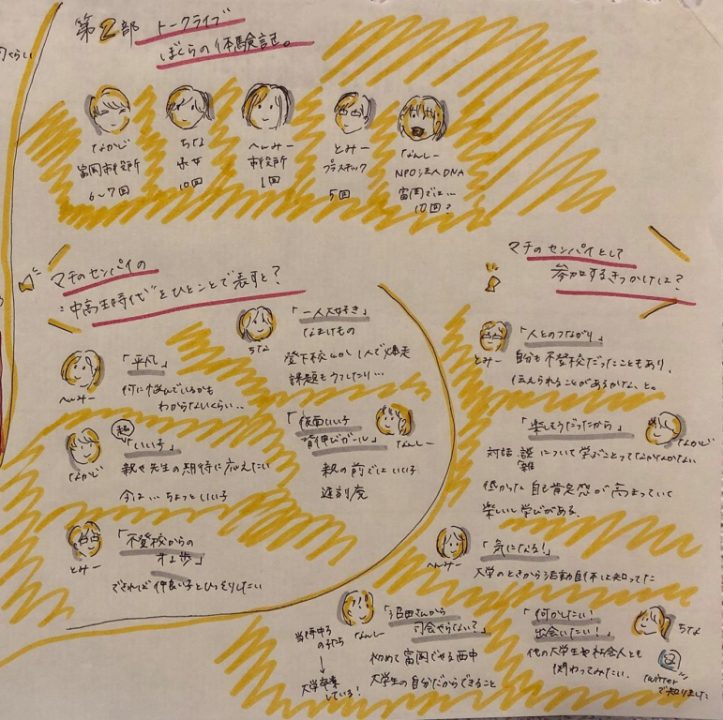 第2部 トークライブ
ぼくらの体験記。
なかじ
富岡市役所
6〜7回
ちな
10回
へーみー
市役所
1回
とみー
プラスチック
5回
なんしー
NPO法人DNA
富岡では…
10回?
マチのセンパイの
"中高生時代"をひとことで表すと?
へーみー
「平凡」
何に悩んでいるかも
わからないくらい..
ちな
「一人大好き」
なまけもの
登下校も1人で爆走
課題もウつしたり…
なかじ
超
「いい子」
親や先生の期待に応えたい
今は… ちょっといい子
「仮面いい子
背伸びガール」
なんしー
親の前ではいい子
遅刻魔
とみー
「不登校からの
オん歩」
できれば仲良い子とひっそりしたい
マチのセンパイとして
参加するきっかけは?
とみー
「人とのつながり」
自分も不登校だったこともあり、
伝えられることがあるかな、と。
「楽しそうだったから」
なかじ
対話、について学ぶことってなかなかない
低かった自己肯定感が高まっていく
楽しい学びがある。
へーみー
「気になる!」
大学のときから活動自体は知ってた
なんしー
当時中3
の子たち
↓
大学卒業
している!
「沼田さんから
司会やらないで」
初めて富岡でやる西中
大学生の自分だからできること
「何かしたい!
出会いたい!」
ちな
他の大学生や社会人とも
関わってみたい。
twitter
で知りました